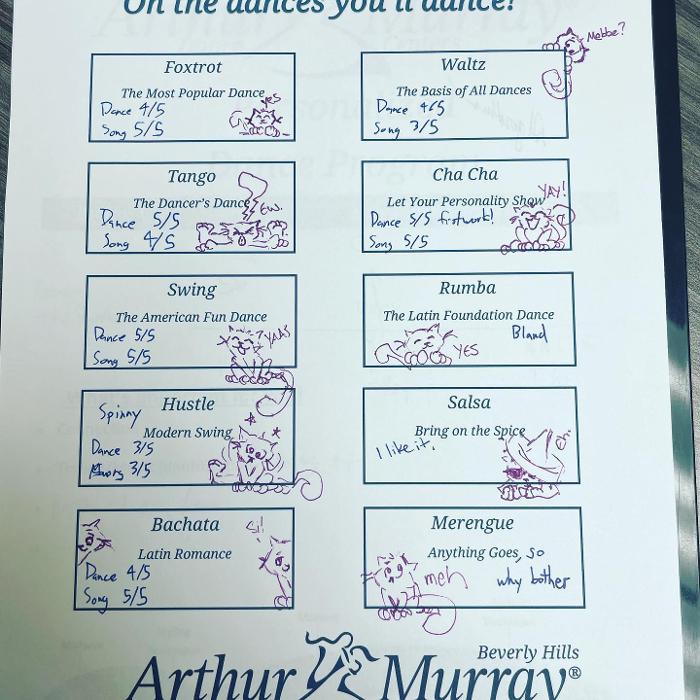 On the dances you'll dance!
Mebbe?
Foxtrot
The Most Popular Dance
yes
Dance 4/5
Song 5/5
Waltz
The Basis of All Dances
Dance 4/5
Song 3/5
Tango
The Dancer's Dance
Ew.
Dance 5/5
Song 4/5
Cha Cha
Let Your Personality Show
YAY!
Dance 5/5 footwork!
Song 5/5
Swing
The American Fun Dance
Dance 5/5
YAAS
Song 5/5
Rumba
The Latin Foundation Dance
Bland
YES
Hustle
Spinny
Modern Swing
Dance 3/5
Song 3/5
Salsa
Bring on the Spice
I like it.
Bachata
Si!
Latin Romance
Dance 4/5
Song 5/5
Merengue
Anything Goes, so
meh
why bother
Beverly Hills
Arthur Murray®